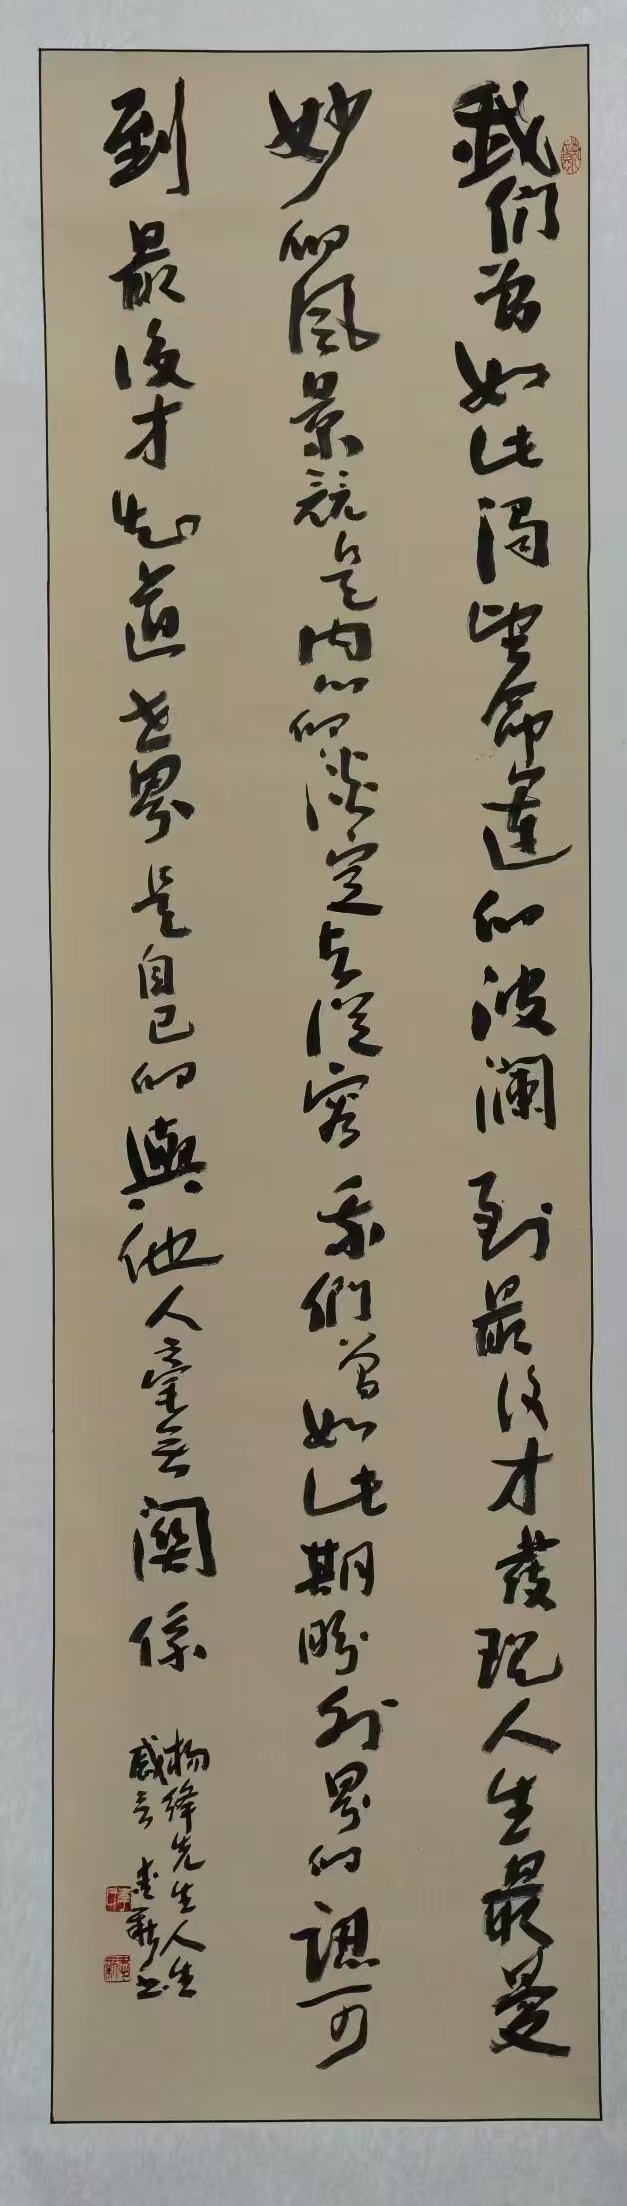 我们曾如此渴望命運的波瀾到最後才發現人生最曼
妙的風景競是内心的淡定与從容我們曾如此期盼外界的認可
到最後才知道世界是自己的與他人毫無關係
杨绛先生人生
感言